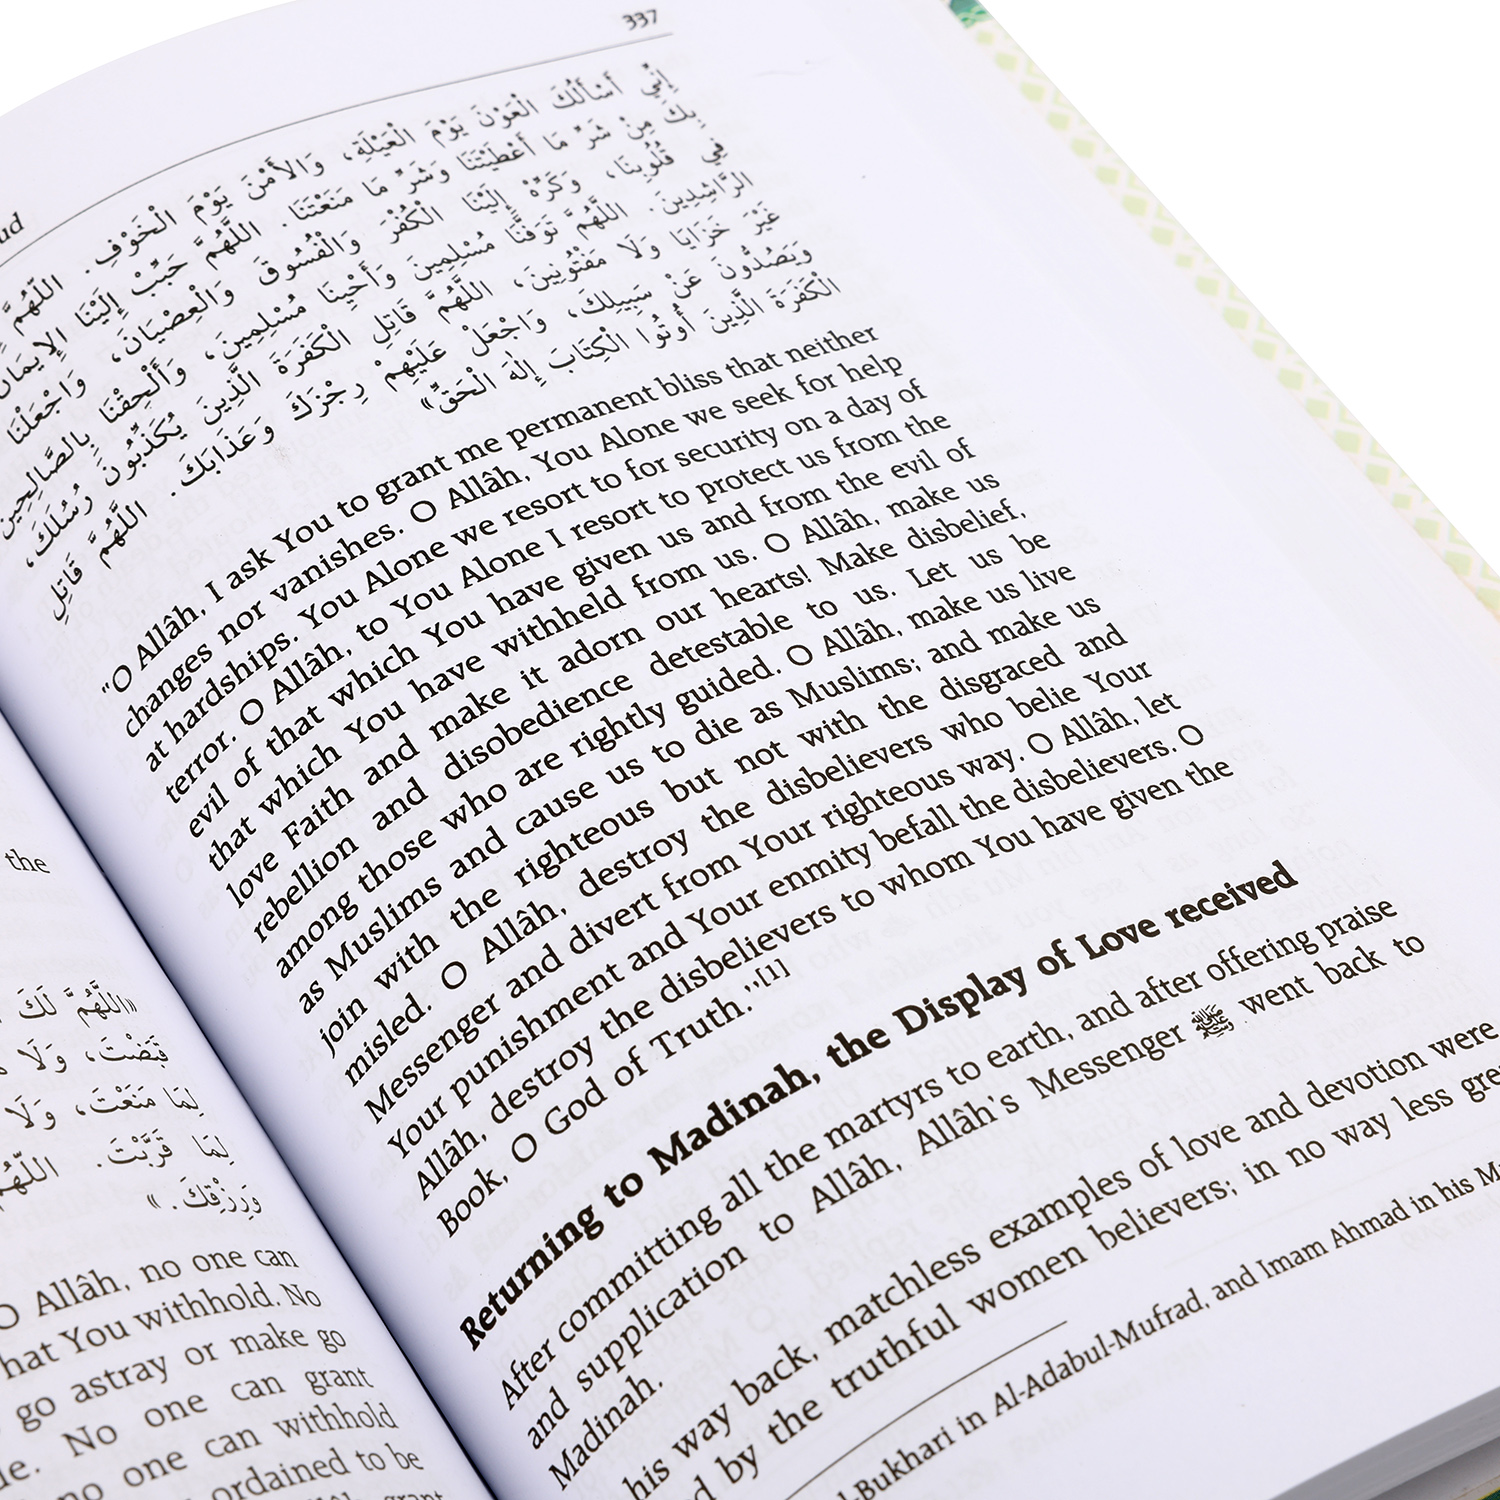 the
«اللَّهُمَّ لَكَ
قَبَضْتَ، وَلَا
لِمَا مَنَعْتَ، وَلَا
لِمَا قَرَّبْتَ. اللَّهُمَّ
وَرِزْقِكَ.»
O Allâh, no one can
hat You withhold. No
go astray or make go
No one can grant
no one can withhold
ordained to be
grant
ud
337
إِنِّي أَسْأَلُكَ الْعَوْنَ يَوْمَ الْعَيْلَةِ، وَالأَمْنَ يَوْمَ الْخَوْفِ. اللَّهُمَّ
بِكَ مِنْ شَرِّ مَا أَعْطَيْتَنَا وَشَرِّ مَا مَنَعْتَنَا. اللَّهُمَّ حَبِّبْ إِلَيْنَا الإِيمَانَ
فِي قُلُوبِنَا، وَكَرِّهْ إِلَيْنَا الْكُفْرَ وَالْفُسُوقَ وَالْعِصْيَانَ، وَاجْعَلْنَا
الرَّاشِدِينَ. اللَّهُمَّ تَوَفَّنَا مُسْلِمِينَ وَأَحْيِنَا مُسْلِمِينَ، وَأَلْحِقْنَا بِالصَّالِحِينَ
غَيْرَ خَزَايَا وَلَا مَفْتُونِينَ، اللَّهُمَّ قَاتِلِ الْكَفَرَةَ الَّذِينَ يُكَذِّبُونَ رُسُلَكَ،
وَيَصُدُّونَ عَنْ سَبِيلِكَ، وَاجْعَلْ عَلَيْهِمْ رِجْزَكَ وَعَذَابَكَ. اللَّهُمَّ قَاتِلِ
الْكَفَرَةَ الَّذِينَ أُوتُوا الْكِتَابَ إِلٰهَ الْحَقِّ»
"O Allâh, I ask You to grant me permanent bliss that neither
changes nor vanishes. O Allâh, You Alone we seek for help
at hardships. You Alone we resort to for security on a day of
terror. O Allâh, to You Alone I resort to protect us from the
evil of that which You have given us and from the evil of
that which You have withheld from us. O Allâh, make us
love Faith and make it adorn our hearts! Make disbelief,
rebellion and disobedience detestable to us. Let us be
among those who are rightly guided. O Allâh, make us live
as Muslims and cause us to die as Muslims; and make us
join with the righteous but not with the disgraced and
misled. O Allâh, destroy the disbelievers who belie Your
Messenger and divert from Your righteous way. O Allâh, let
Your punishment and Your enmity befall the disbelievers. O
Allâh, destroy the disbelievers to whom You have given the
Book, O God of Truth."[1]
Returning to Madinah, the Display of Love received
After committing all the martyrs to earth, and after offering praise
and supplication to Allâh, Allâh's Messenger ﷺ went back to
Madinah.
his way back, matchless examples of love and devotion were
d by the truthful women believers; in no way less
l-Bukhari in Al-Adabul-Mufrad, and Imam Ahmad in his